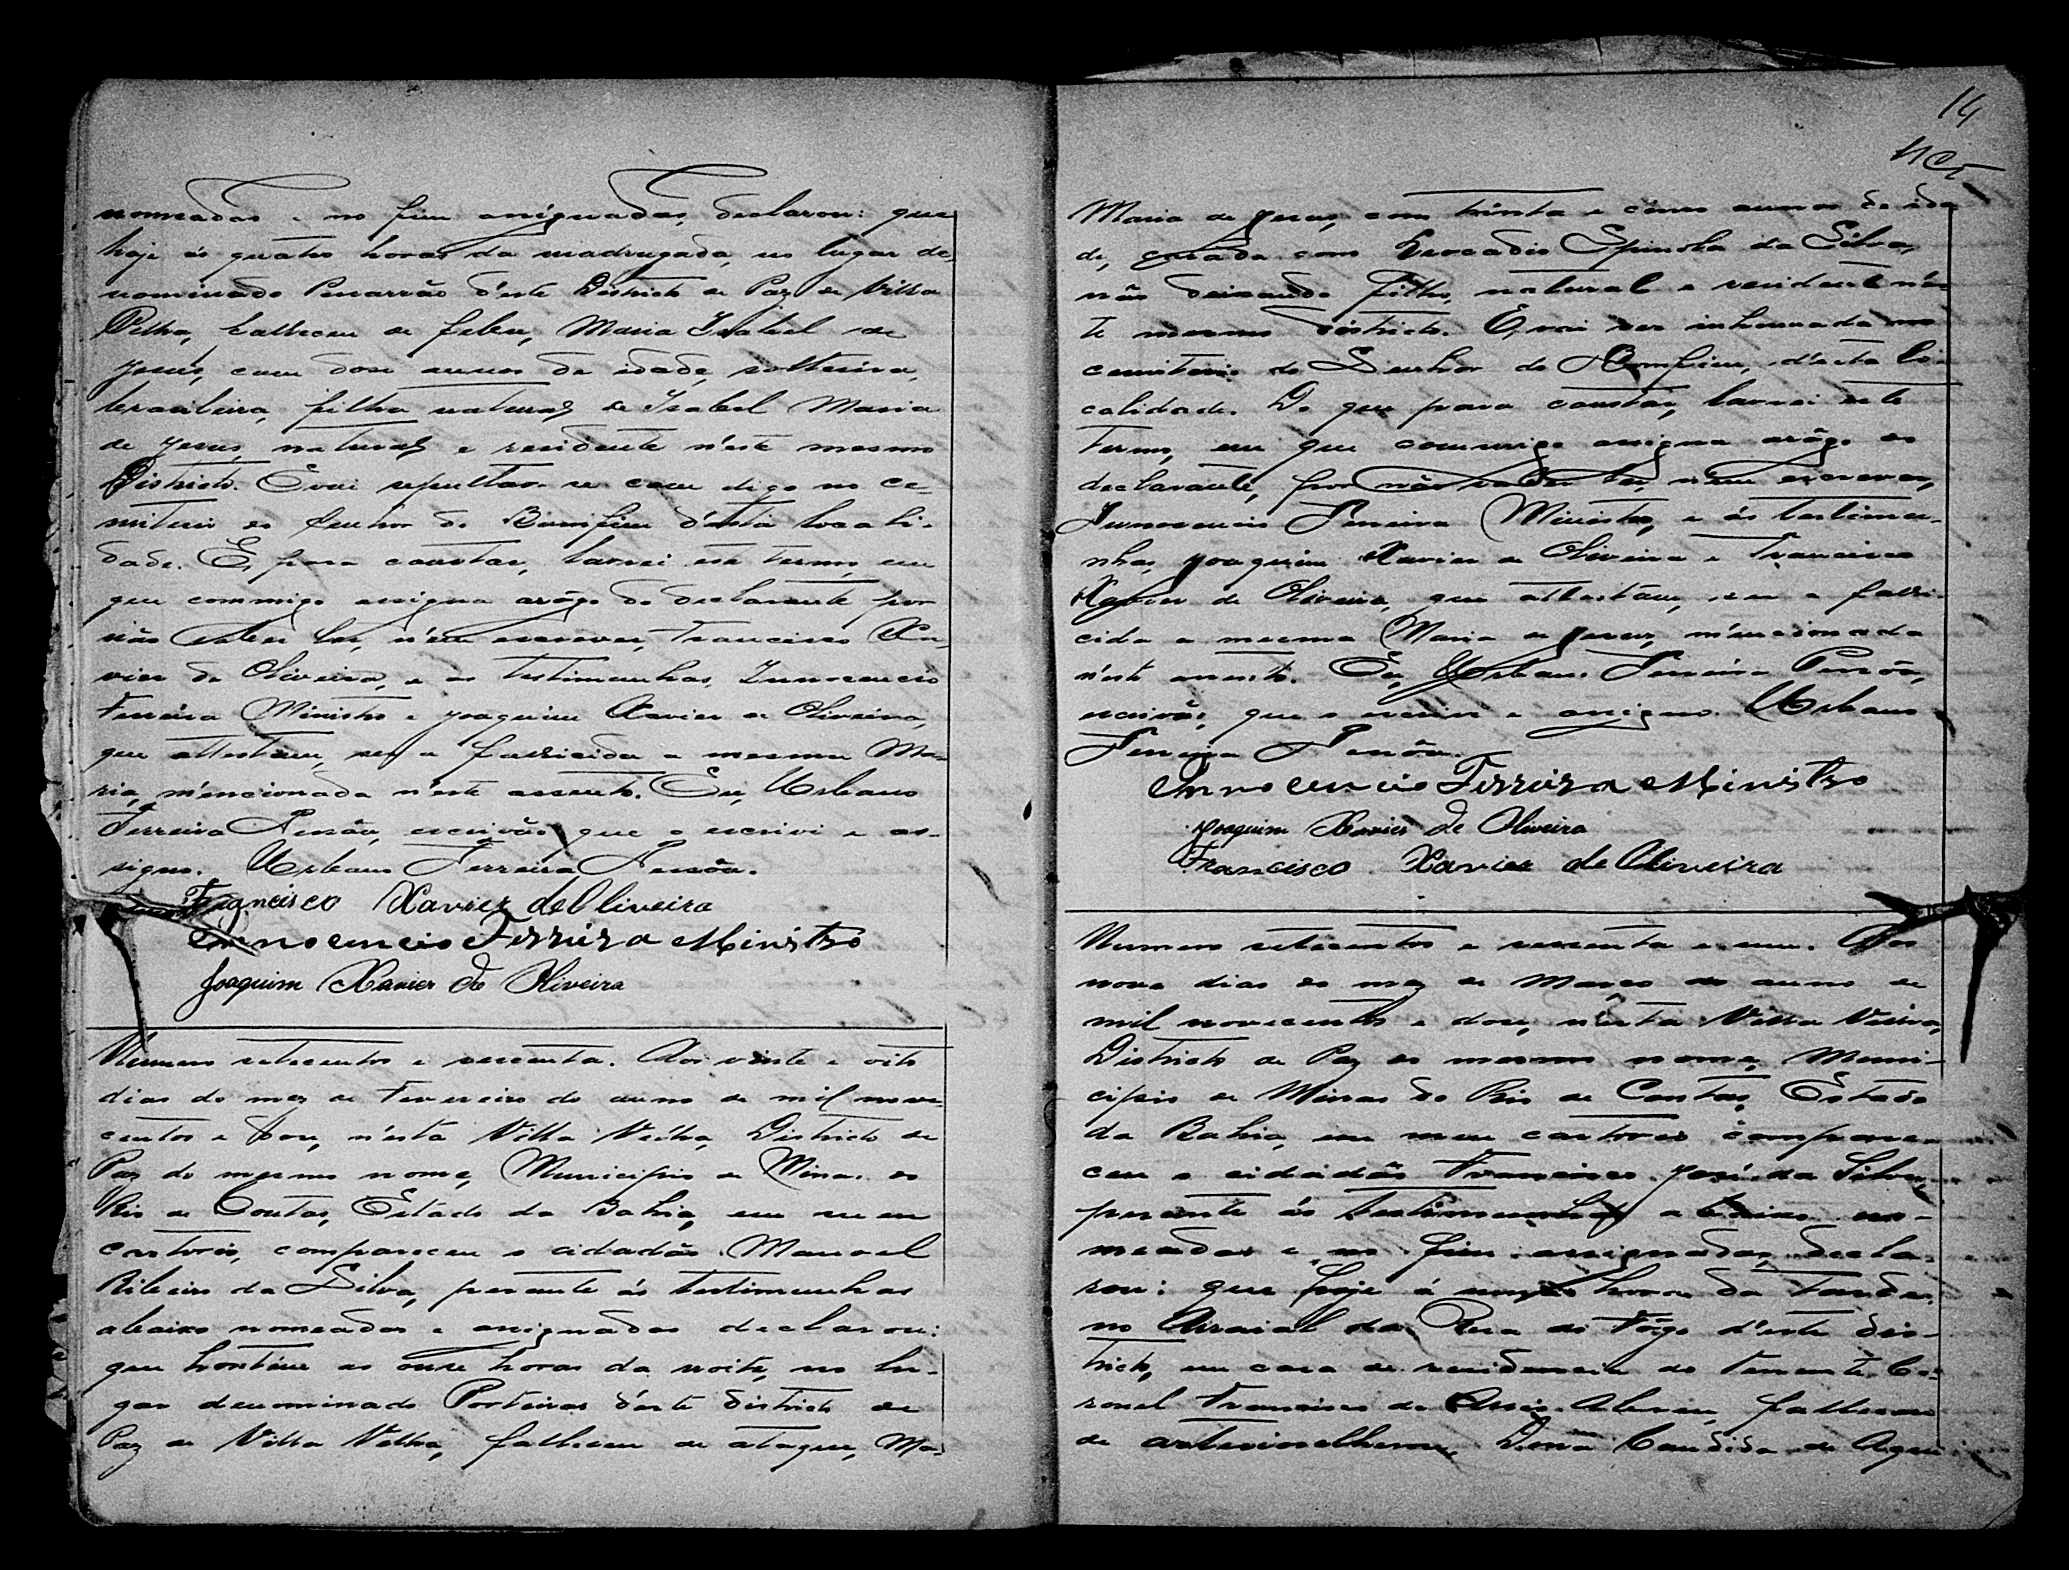 nomeadas e no fim assignadas, declarou: que
hoje ás quatro horas da madrugada, no lugar de-
nominado d'este Districto de Paz de Villa
Velha, falleceu de febre, Maria Isabel de
Jesus, com dose annos de idade, solteira,
brasileira, filha natural de Isabel Maria
de Jesus, natural e residente n'este mesmo
Districto. E vai sepultar-se com digo no ce-
miterio do Senhor do Bomfim d'esta locali-
dade. E, para constar, lavrei este termo, em
que commigo assigna arôgo do declarante por
não saber ler, n'em escrever, Francisco Xa-
vier de Oliveira, e as testimunhas, Innocencio
Ferreira Ministro e Joaquim Xavier de Oliveira,
que attestam, ser a fallicida a mesma Ma-
ria, m'encionada n'este assento. Eu, Urbano
Ferreira Pessôa, escrivão que o escrivi e as-
signo. Urbano Ferreira Pessôa.
Francisco Xavier de Oliveira
Innocencio Ferreira Ministro
Joaquim Xavier de Oliveira
Numero setecentos e sessenta. Aos vinte e oito
dias do mez de Fevereiro do anno de mil nove-
centos e dose, n'esta Villa Velha, Districto de
Paz do mesmo nome, Municipio de Minas do
Rio de Contas, Estado da Bahia, em meu
cartorio, compareceu o cidadão Manoel
Ribeiro da Silva, perante ás testimunhas
abaixo nomeadas e assignadas declarou:
que hontem as onse horas da noite, no lu-
gar denominado Porteiras d'este districto de
Paz de Villa Velha, falleceu de ataque, Ma-
14
Maria de Jesus, com trinta e cinco annos de ida
de, casada com Leocadio Spinola da Silva,
não deixando filho, natural e residente n'es-
te mesmo districto. E, vai ser inhumada no
cemiterio do Senhor do Bomfim, d'esta lo-
calidade. Do que para constar, lavrei este
termo, em que commigo assigna arôgo do
declarante, por não saber ler, n'em escrever,
Innocencio Ferreira Ministro, e ás testimu-
nhas, Joaquim Xavier de Oliveira e Francisco
Xavier de Oliveira, que attestam, ser a falli-
cida a mesma Maria de Jesus, m'encionada
n'este assento. Eu, Urbano Ferreira Pessôa,
escrivão, que o escrivi e assigno. Urbano
Ferreira Pessôa.
Innocencio Ferreira Ministro
Joaquim Xavier de Oliveira
Francisco Xavier de Oliveira
Numero setecentos e sessenta e um. Aos
nove dias do mez de Março do anno de
mil novecentos e dose, n'esta Villa Velha,
Districto de Paz do mesmo nome, Muni-
cipio de Minas do Rio de Contas, Estado
da Bahia, em meu cartorio compare-
ceu o cidadão Francisco José da Silva,
perante ás testimunhas abaixo no-
meadas e no fim assignadas, decla-
rou: que hoje á hora da tarde,
no Arraial da do Fôgo d'este dis-
tricto, em casa de residencia do Tenente Co-
ronel Francisco de Assis Abreu, falleceu
de Dona Candida de Agui